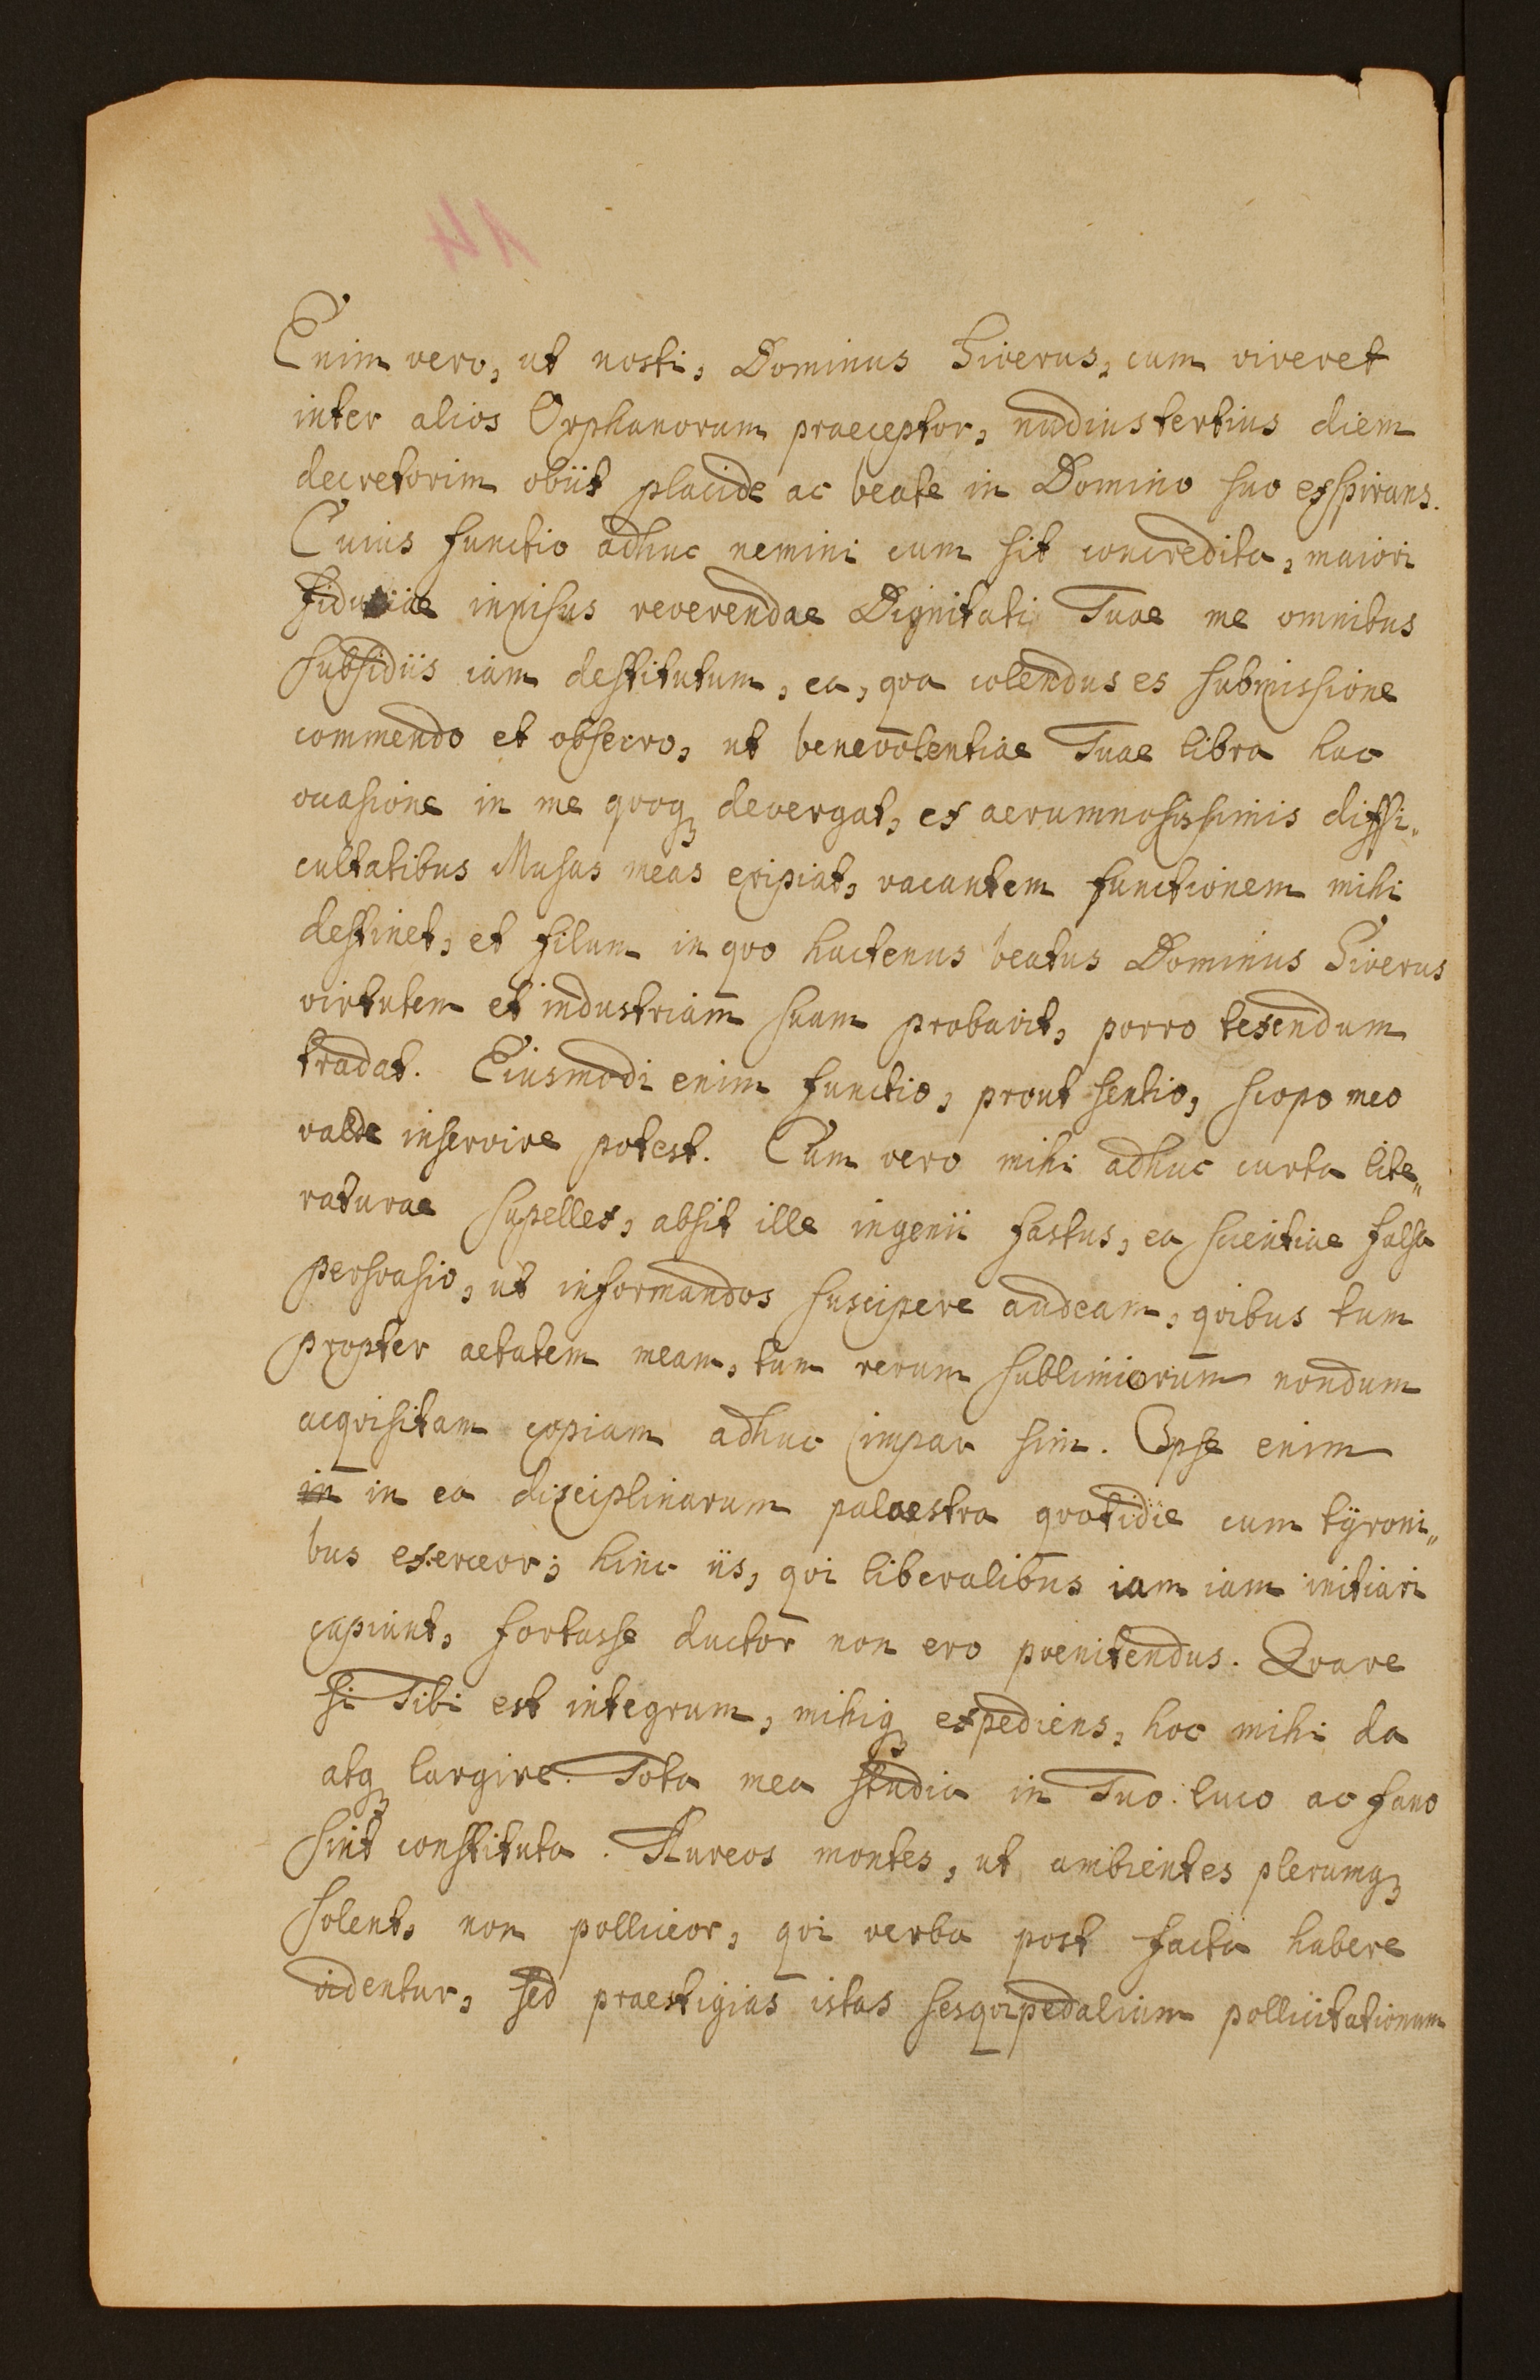 14
Enim vero, ut nosti, Dominus Siverus, cum viveret
inter alios Orphanorum praeceptor, nudiustertius diem
decretorim obiit placide ac beate in Domino suo exspirans.
Cuius functio adhuc nemini cum sit concredita, maiori
fiduciae innisus reverendae Dignitati Tuae me omnibus
subsidiis iam destitutum, ea, qva colendus es submissione
commendo et obsecro, ut benevolentiae Tuae libra hac
occasione in me qvoqꝫ devergat, ex aerumnosissimis diffi„
cultatibus Musas meas eripiat, vacantem functionem mihi
destinet, et filum in qvo hactenus beatus Dominus Siverus
virtutem et industriam suam probavit, porro texendum
tradat. Eiusmodi enim functio, prout sentio, scopo meo
valde inservire potest. Cum vero mihi adhuc curta lite„
raturae supellex, absit ille ingenii fastus, ea scientiae falsa
persvasio, ut informandos suscipere audeam, qvibus tum
propter aetatem meam, tum rerum sublimiorum nondum
acqvisitam copiam adhuc impar sim. Ipse enim
in in ea disciplinarum palaestra qvotidie cum tÿroni„
bus exerceor; hinc iis, qvi liberalibus iam iam initiari
cupiunt, fortasse ductor non ero poenitendus. Qvare
si Tibi est integrum, mihiqꝫ expediens, hoc mihi da
atqꝫ largire. Tota mea studia in Tuo luco ac fano
sint constituta. Aureos montes, ut ambientes plerumqꝫ
solent, non polliceor, qvi verba post facta habere
videntur, sed praestigias istas sesqvipedalium pollicitationum